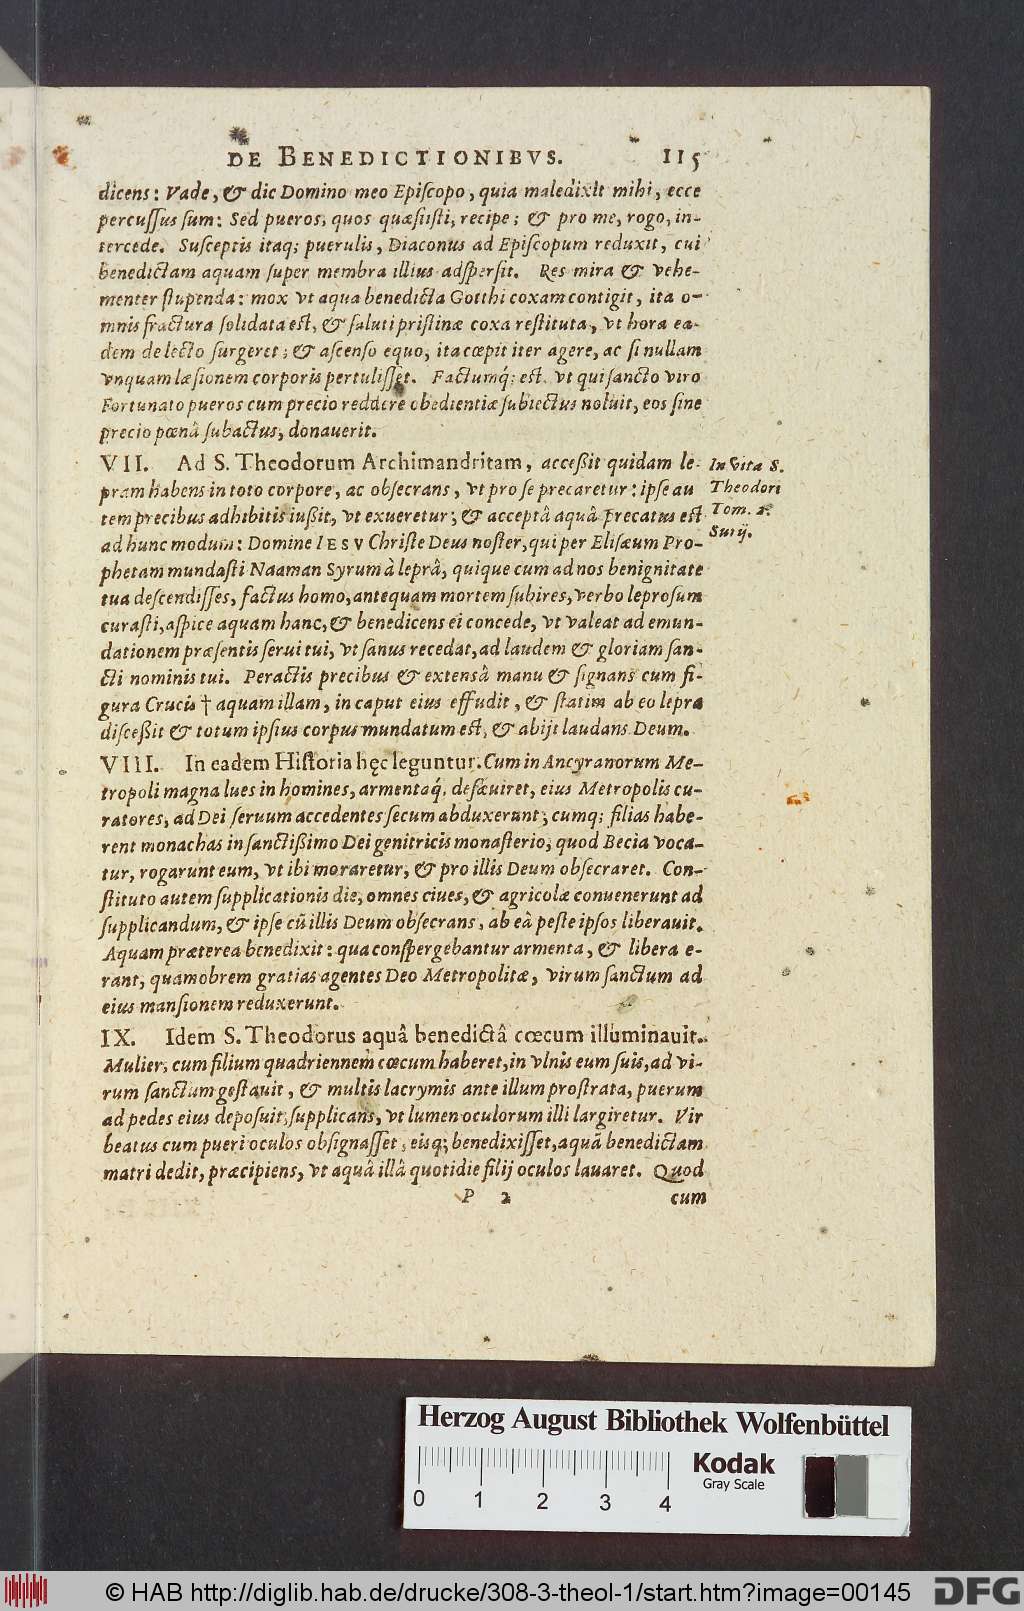 DE BENEDICTIONIBVS. 115
dicens: Vade, & dic Domino meo Epiſcopo, quia maledixit mihi, ecce
percuſſus ſum: Sed pueros, quos quæſiiſti, recipe; & pro me, rogo, in-
tercede. Suſceptis itaq; puerulis, Diaconus ad Epiſcopum reduxit, cui
benedictam aquam ſuper membra illius adſperſit. Res mira & vehe-
menter ſtupenda: mox vt aqua benedicta Gotthi coxam contigit, ita o-
mnis fractura ſolidata eſt, & ſaluti priſtinæ coxa reſtituta, vt hora ea-
dem de lecto ſurgeret; & aſcenſo equo, ita cœpit iter agere, ac ſi nullam
vnquam læſionem corporis pertuliſſet. Factumq́; eſt, vt qui ſancto viro
Fortunato pueros cum precio reddere obedientiæ ſubiectus noluit, eos ſine
precio pœnâ ſubactus, donauerit.
VII. Ad S. Theodorum Archimandritam, acceßit quidam le-
pram habens in toto corpore, ac obſecrans, vt pro ſe precaretur: ipſe au
tem precibus adhibitis iußit, vt exueretur; & acceptâ aquâ precatus eſt
ad hunc modum: Domine IESV Chriſte Deus noſter, qui per Eliſæum Pro-
phetam mundaſti Naaman Syrum à leprâ, quique cum ad nos benignitate
tua deſcendiſſes, factus homo, antequam mortem ſubires, verbo leproſum
curaſti, aſpice aquam hanc, & benedicens ei concede, vt valeat ad emun-
dationem præſentis ſerui tui, vt ſanus recedat, ad laudem & gloriam ſan-
cti nominis tui. Peractis precibus & extensâ manu & ſignans cum fi-
gura Crucis † aquam illam, in caput eius effudit, & ſtatim ab eo lepra
diſceßit & totum ipſius corpus mundatum eſt, & abijt laudans Deum.
In vita S.
Theodori
Tom. 2.
Surij.
VIII. In eadem Hiſtoria hęc leguntur. Cum in Ancyranorum Me-
tropoli magna lues in homines, armentaq́, deſæuiret, eius Metropolis cu-
ratores, ad Dei ſeruum accedentes ſecum abduxerunt; cumq; filias habe-
rent monachas in ſanctißimo Dei genitricis monaſterio, quod Becia voca-
tur, rogarunt eum, vt ibi moraretur, & pro illis Deum obſecraret. Con-
ſtituto autem ſupplicationis die, omnes ciues, & agricolæ conuenerunt ad
ſupplicandum, & ipſe cũ illis Deum obſecrans, ab eâ peſte ipſos liberauit.
Aquam præterea benedixit: qua conſpergebantur armenta, & libera e-
rant, quamobrem gratias agentes Deo Metropolitæ, virum ſanctum ad
eius manſionem reduxerunt.
IX. Idem S. Theodorus aquâ benedictâ cœcum illuminauit.
Mulier, cum filium quadriennem cœcum haberet, in vlnis eum ſuis, ad vi-
rum ſanctum geſtauit, & multis lacrymis ante illum proſtrata, puerum
ad pedes eius depoſuit, ſupplicans, vt lumen oculorum illi largiretur. Vir
beatus cum pueri oculos obſignaſſet, eisq; benedixiſſet, aquā benedictam
matri dedit, præcipiens, vt aquâ illâ quotidie filij oculos lauaret. Quod
P 2 cum
Herzog August Bibliothek Wolfenbüttel
0 1 2 3 4
Kodak
Gray Scale
© HAB http://diglib.hab.de/drucke/308-3-theol-1/start.htm?image=00145
DFG